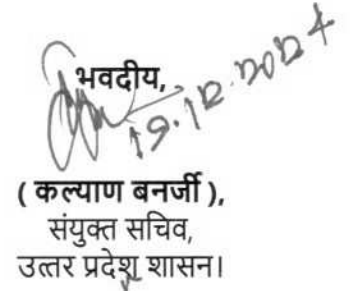 भवदीय,
19.12.2024
( कल्याण बनर्जी ),
संयुक्त सचिव,
उत्तर प्रदेश शासन।